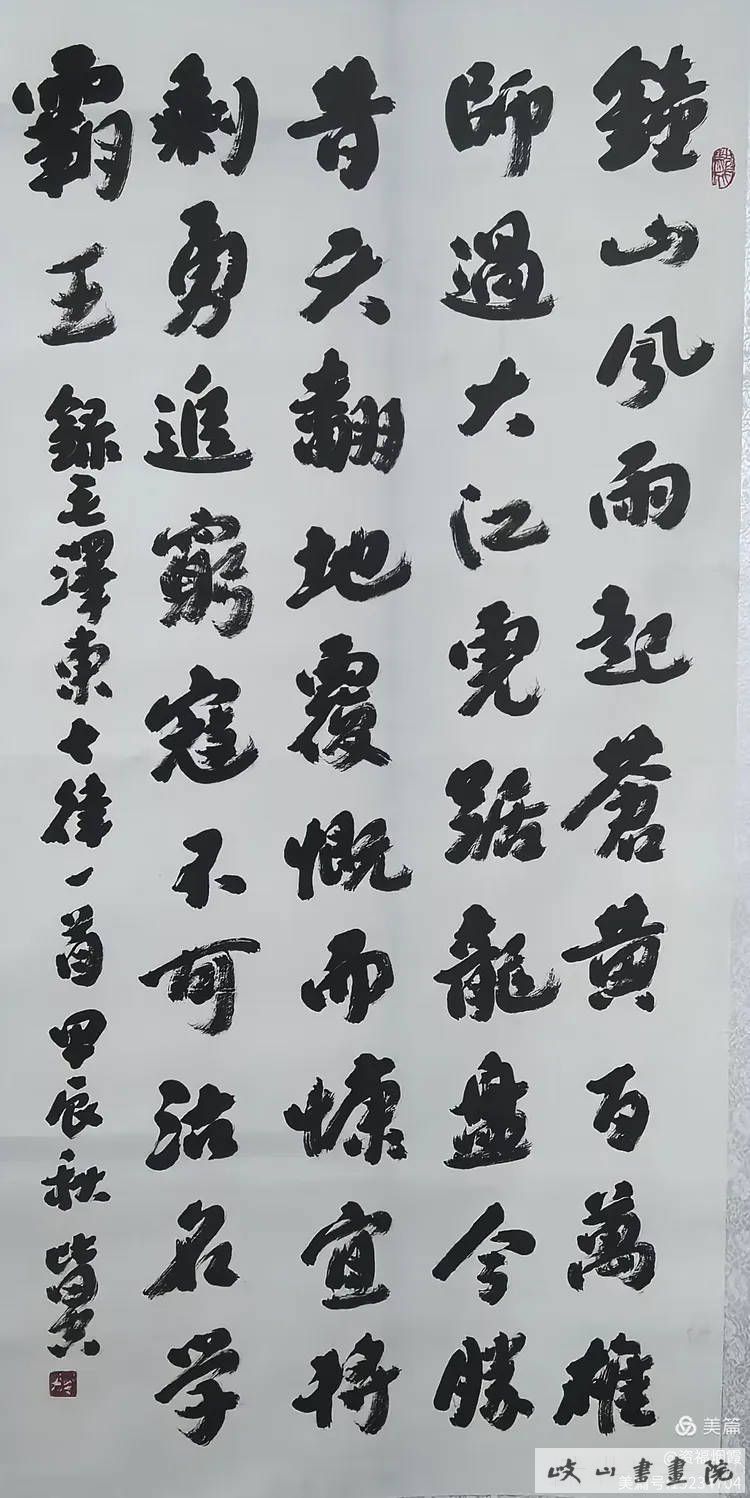 鐘山风雨起蒼黄百萬雄
師過大江虎踞龍盘今勝
昔天翻地覆慨而慷宜将
剩勇追窮寇不可沽名学
霸王 録毛澤東七律一首 甲辰秋
美篇
岐山書畫院